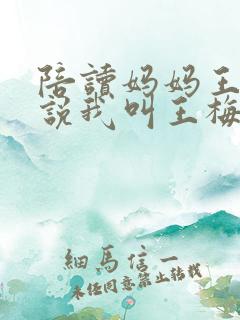 陪讀妈妈王
說我叫王梅
細馬信一
未经同意禁止转载